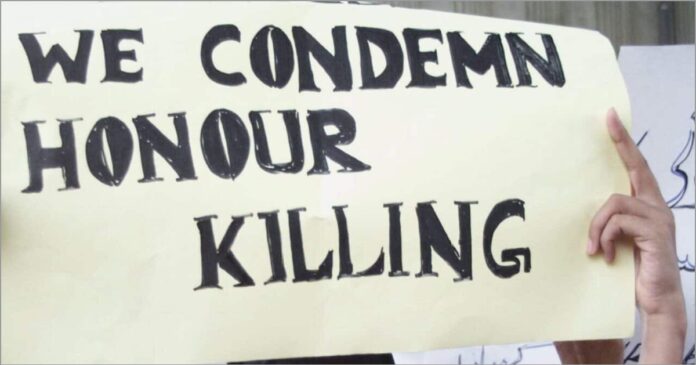 WE CONDEMN
HONOUR
KILLING